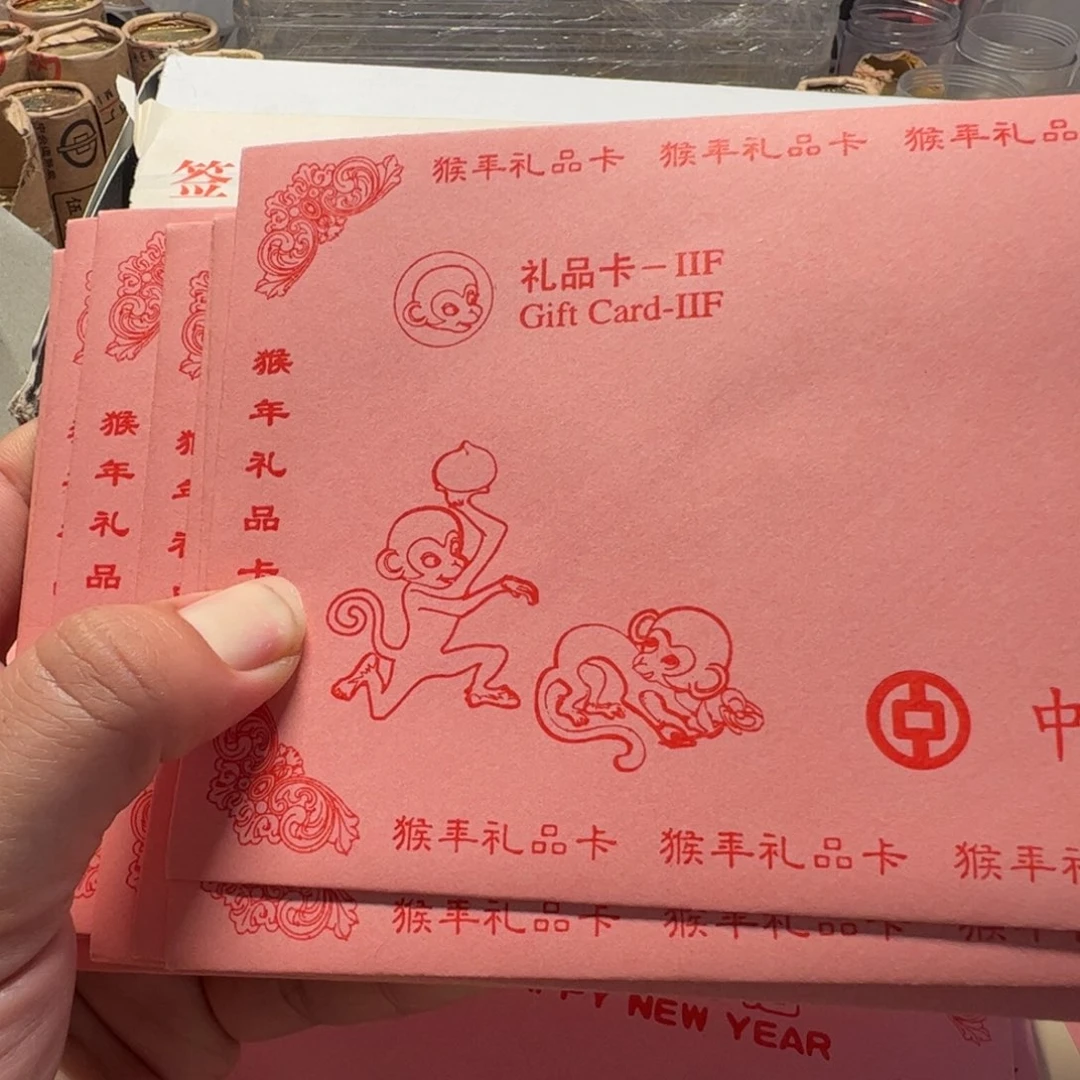 签
猴年礼品卡 猴年礼品卡 猴年礼品
礼品卡－IIF
Gift Card-IIF
猴年礼品卡
猴年礼品
中
猴年礼品卡 猴年礼品卡 猴年礼
猴年礼品卡 猴年礼品卡
NEW YEAR